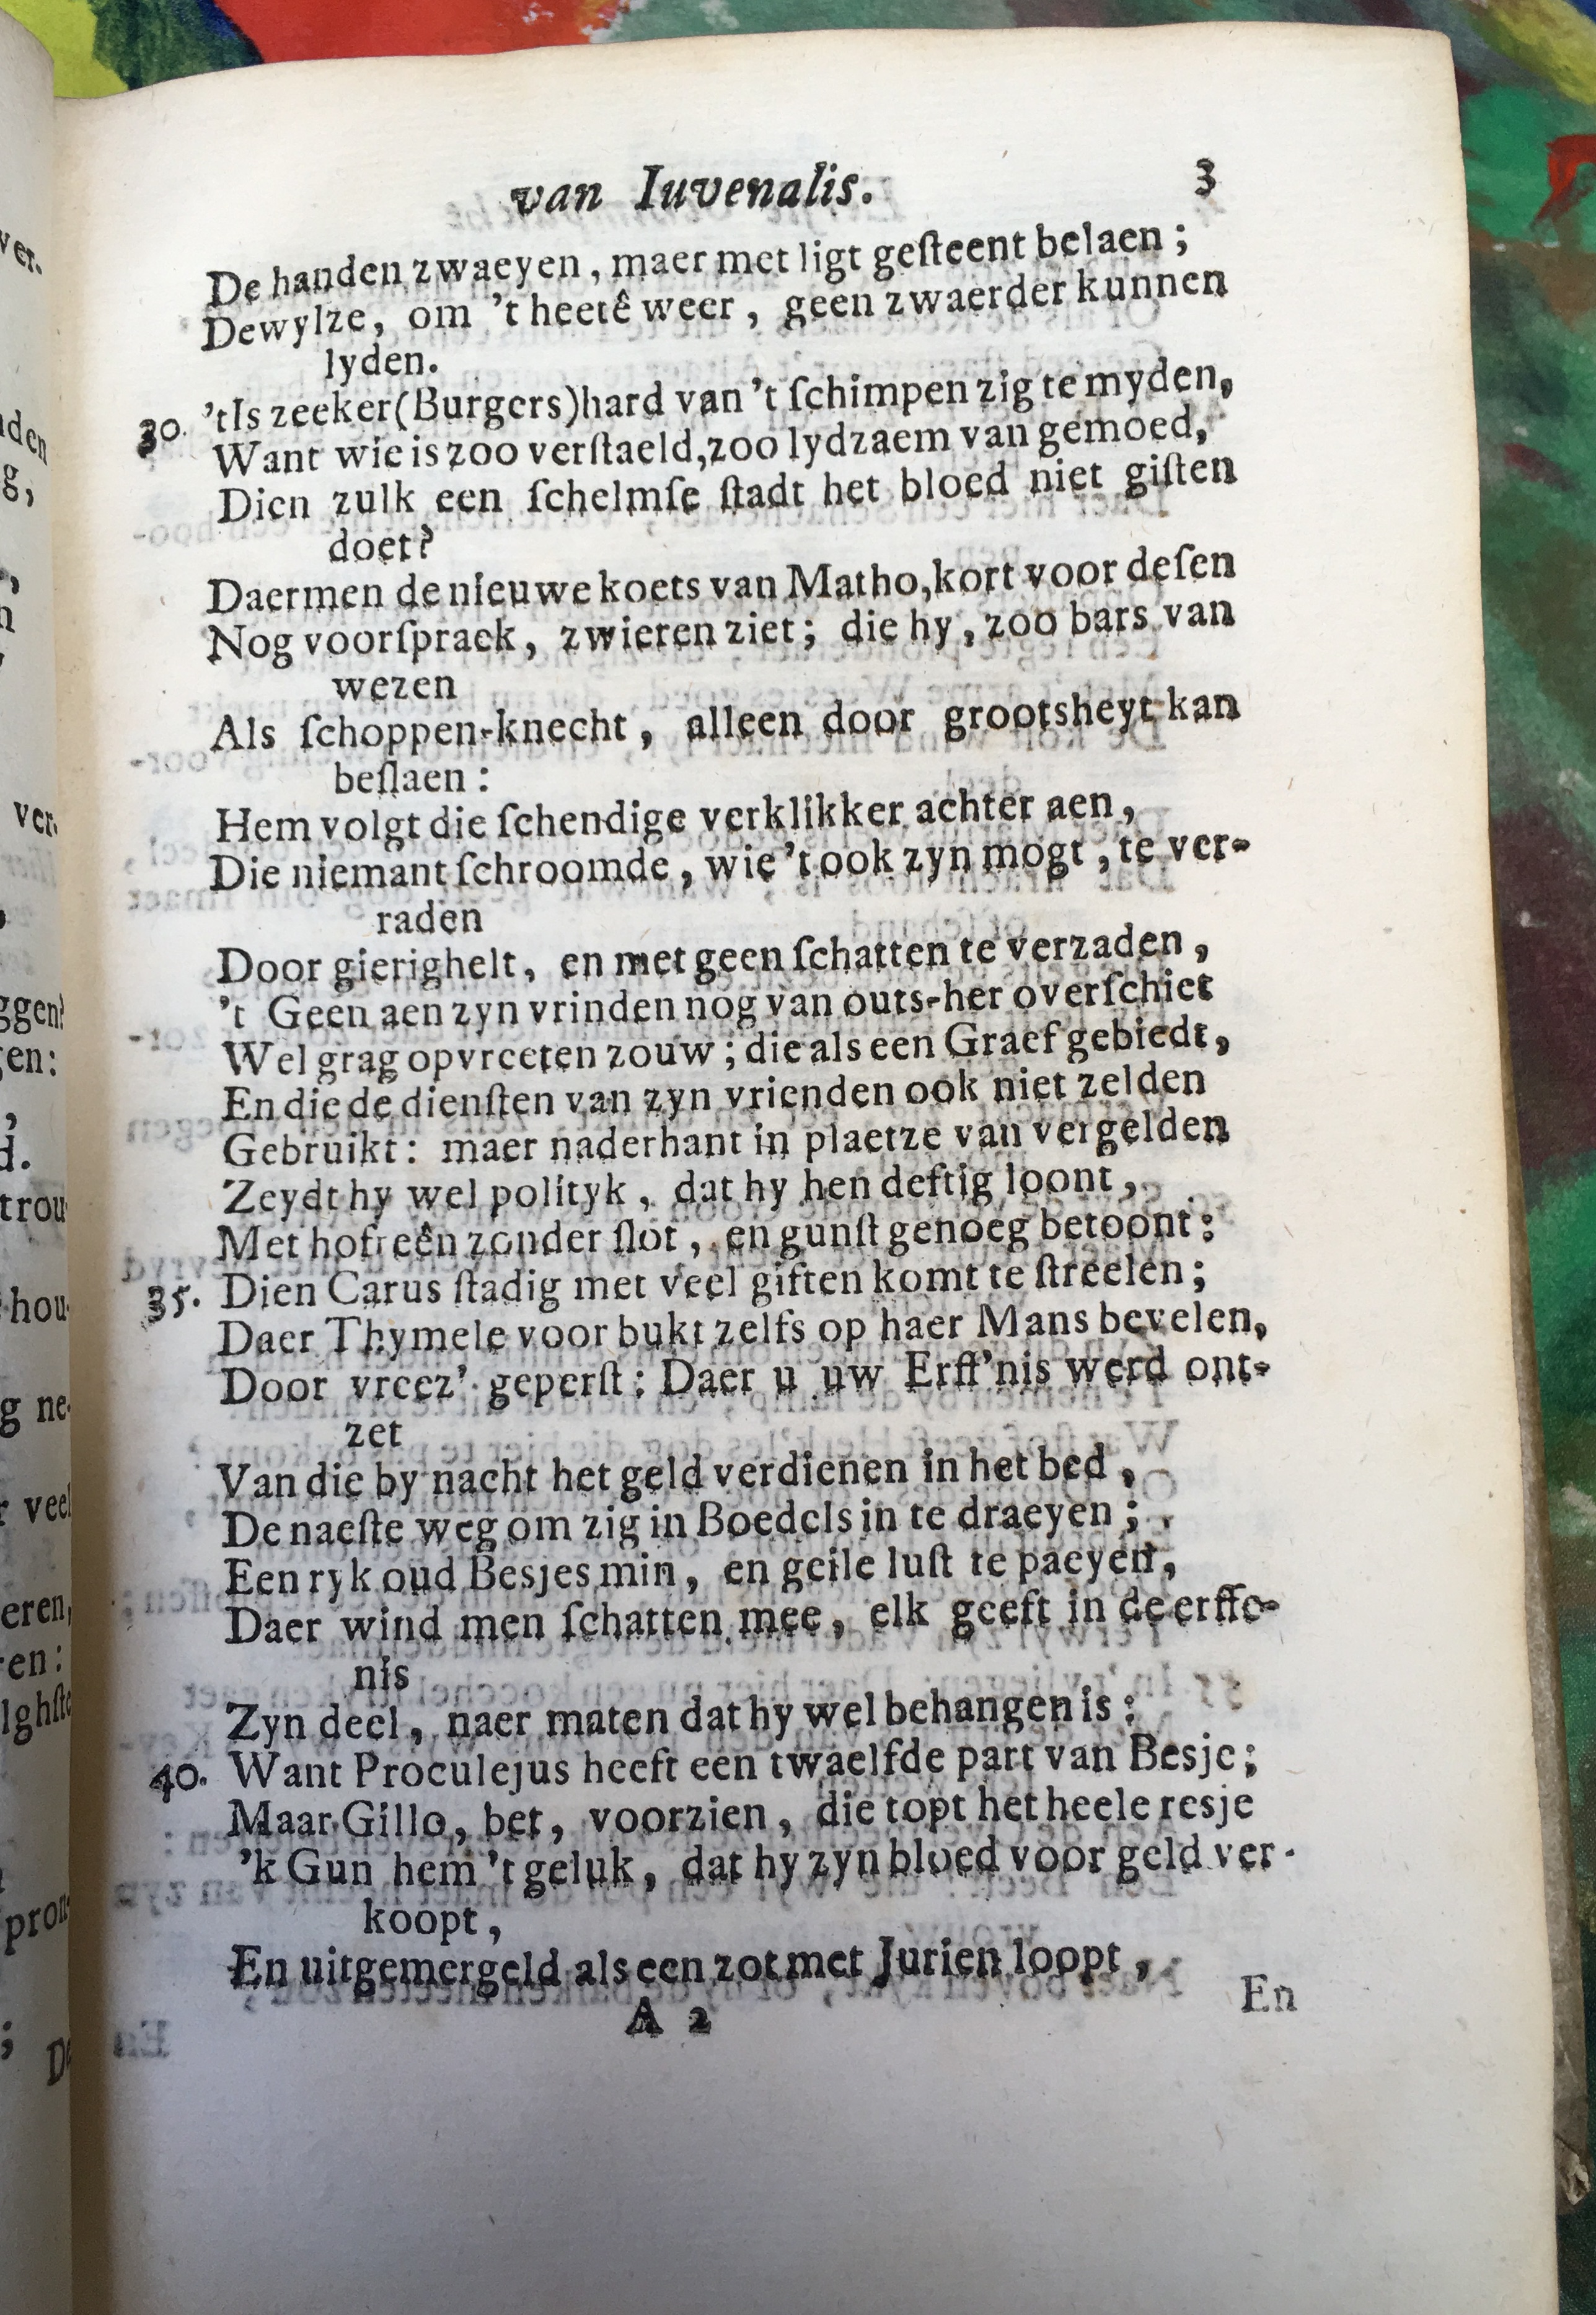 van Iuvenalis. 3
De handen zwaeyen, maer met ligt geſteent belaen;
Dewylze, om 't heetê weer, geen zwaerder kunnen
lyden.
30. 'tIs zeeker (Burgers) hard van 't ſchimpen zig te myden,
Want wie is zoo verſtaeld, zoo lydzaem van gemoed,
Dien zulk een ſchelmſe ſtadt het bloed niet giſten
doet?
Daermen de nieuwe koets van Matho, kort voor deſen
Nog voorſpraek, zwieren ziet; die hy, zoo bars van
wezen
Als ſchoppen-knecht, alleen door grootsheyt kan
beſlaen:
Hem volgt die ſchendige verklikker achter aen,
Die niemant ſchroomde, wie 't ook zyn mogt, te ver-
raden
Door gierigheIt, en met geen ſchatten te verzaden,
't Geen aen zyn vrinden nog van outs-her overſchiet
Wel grag opvreeten zouw; die als een Graef gebiedt,
En die de dienſten van zyn vrienden ook niet zelden
Gebruikt: maer naderhant in plaetze van vergelden
Zeydt hy wel polityk, dat hy hen deftig loont,
Met hofreên zonder ſlot, en gunſt genoeg betoont:
35. Dien Carus ſtadig met veel giften komt te ſtreelen;
Daer Thymele voor bukt zelfs op haer Mans bevelen,
Door vreez' geperſt: Daer u uw Erff'nis werd ont-
zet
Van die by nacht het geld verdienen in het bed,
De naeſte weg om zig in Boedels in te draeyen;
Een ryk oud Besjes min, en geile luſt te paeyen,
Daer wind men ſchatten mee, elk geeft in de erffe-
nis
Zyn deel, naer maten dat hy wel behangen is:
40. Want Proculejus heeft een twaelfde part van Besje;
Maar Gillo, bet, voorzien, die topt het heele resje
'k Gun hem 't geluk, dat hy zyn bloed voor geld ver-
koopt,
En uitgemergeld als een zot met Jurien loopt,
A 2 En